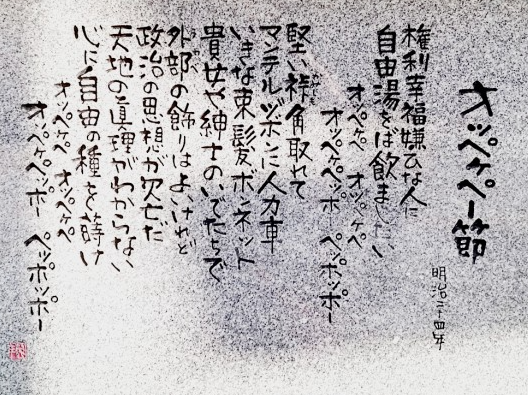 オッペケペー節
明治二十四年
権利幸福嫌ひな人に
自由湯をば飲ましたい
オッペケペ オッペケペ
オッペケペッポー ペッポッポー
堅い裃角取れて
マンテルヅボンに人力車
いきな束髪ボンネット
貴女や紳士のいでたちで
外部の飾りはよいけれど
政治の思想が欠乏だ
天地の真理がわからない
心に自由の種を蒔け
オッペケペ オッペケペ
オッペケペッポー ペッポッポー